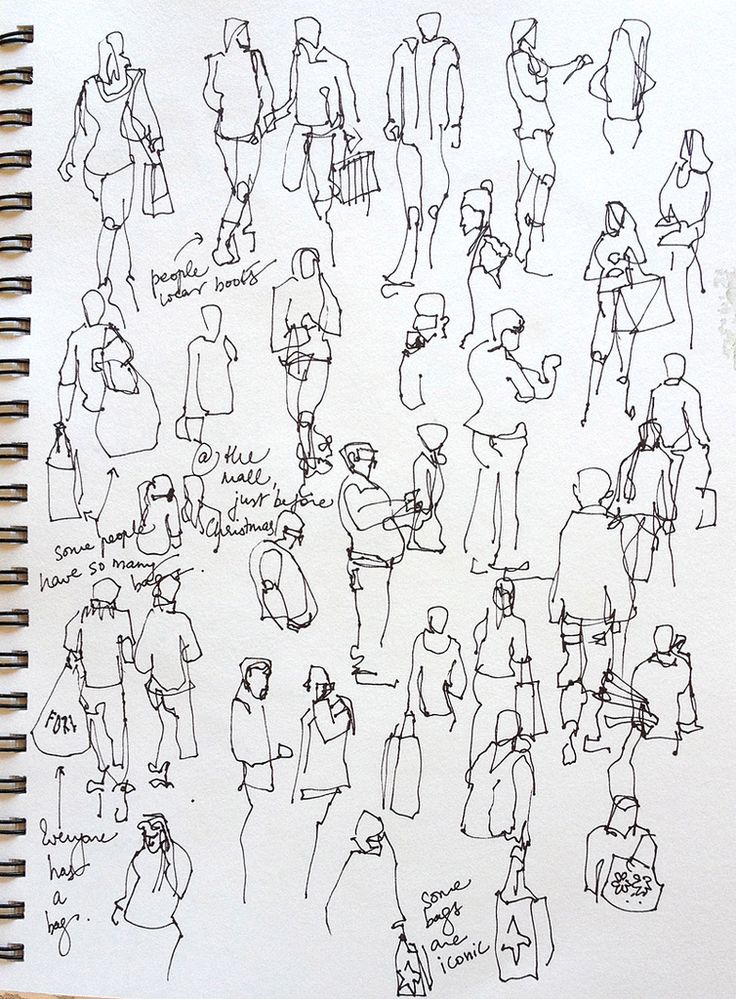 people
wear boots
@ the
mall,
just before
Christmas
some people
have so many
bags.
FORX
Everyone
has
a
bag.
some
bags
are
iconic